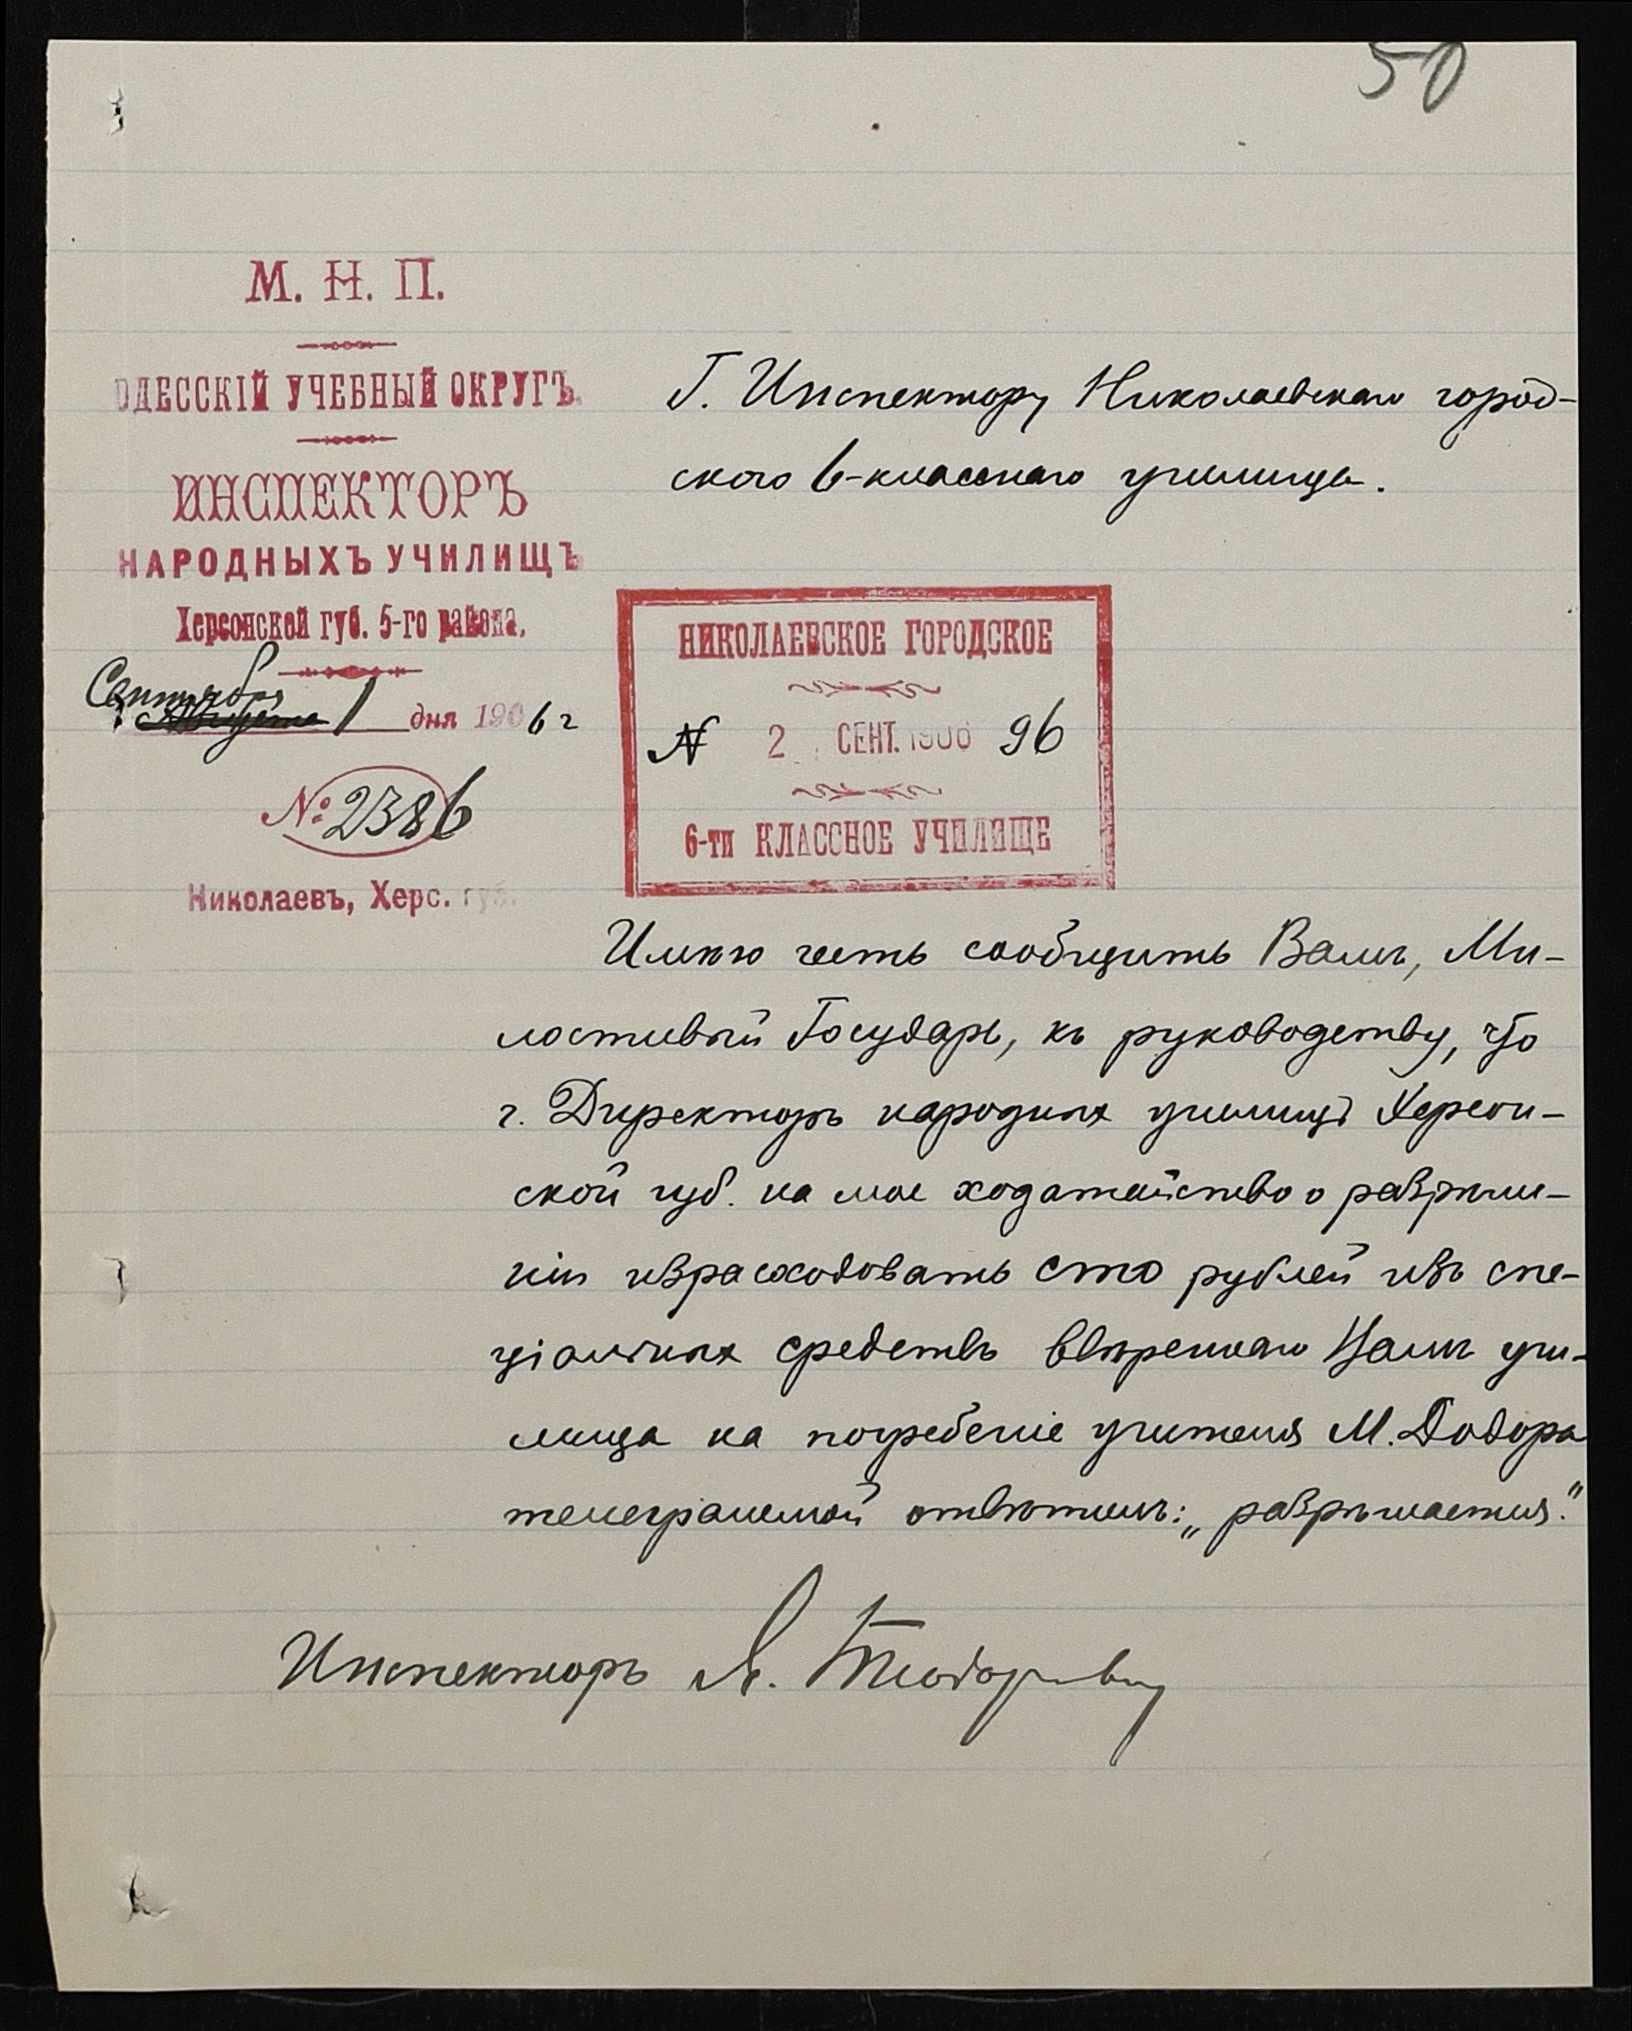 50
М. Н. П.
ОДЕССКІЙ УЧЕБНЫЙ ОКРУГЪ.
ИНСПЕКТОРЪ
НАРОДНЫХЪ УЧИЛИЩЪ
Херсонской губ. 5-го района.
Сентября
Августа 1 дня 1906 г
№ 2386
Николаевъ, Херс. губ.
Г. Инспектору Николаевскаго город-
ского 6-класснаго училища.
НИКОЛАЕВСКОЕ ГОРОДСКОЕ
N 2 СЕНТ. 1906 96
6-ти КЛАССНОЕ УЧИЛИЩЕ
Имѣю честь сообщить Вамъ, Ми-
лостивый Государь, къ руководству, что
г. Директоръ народныхъ училищъ Херсон-
ской губ. на мое ходатайство о разрѣше-
ніи израсходовать сто рублей изъ спе-
ціальныхъ средствъ ввѣреннаго Вамъ учи-
лища на погребеніе учителя М. Додора
телеграммой отвѣтилъ: „разрѣшается."
Инспекторъ